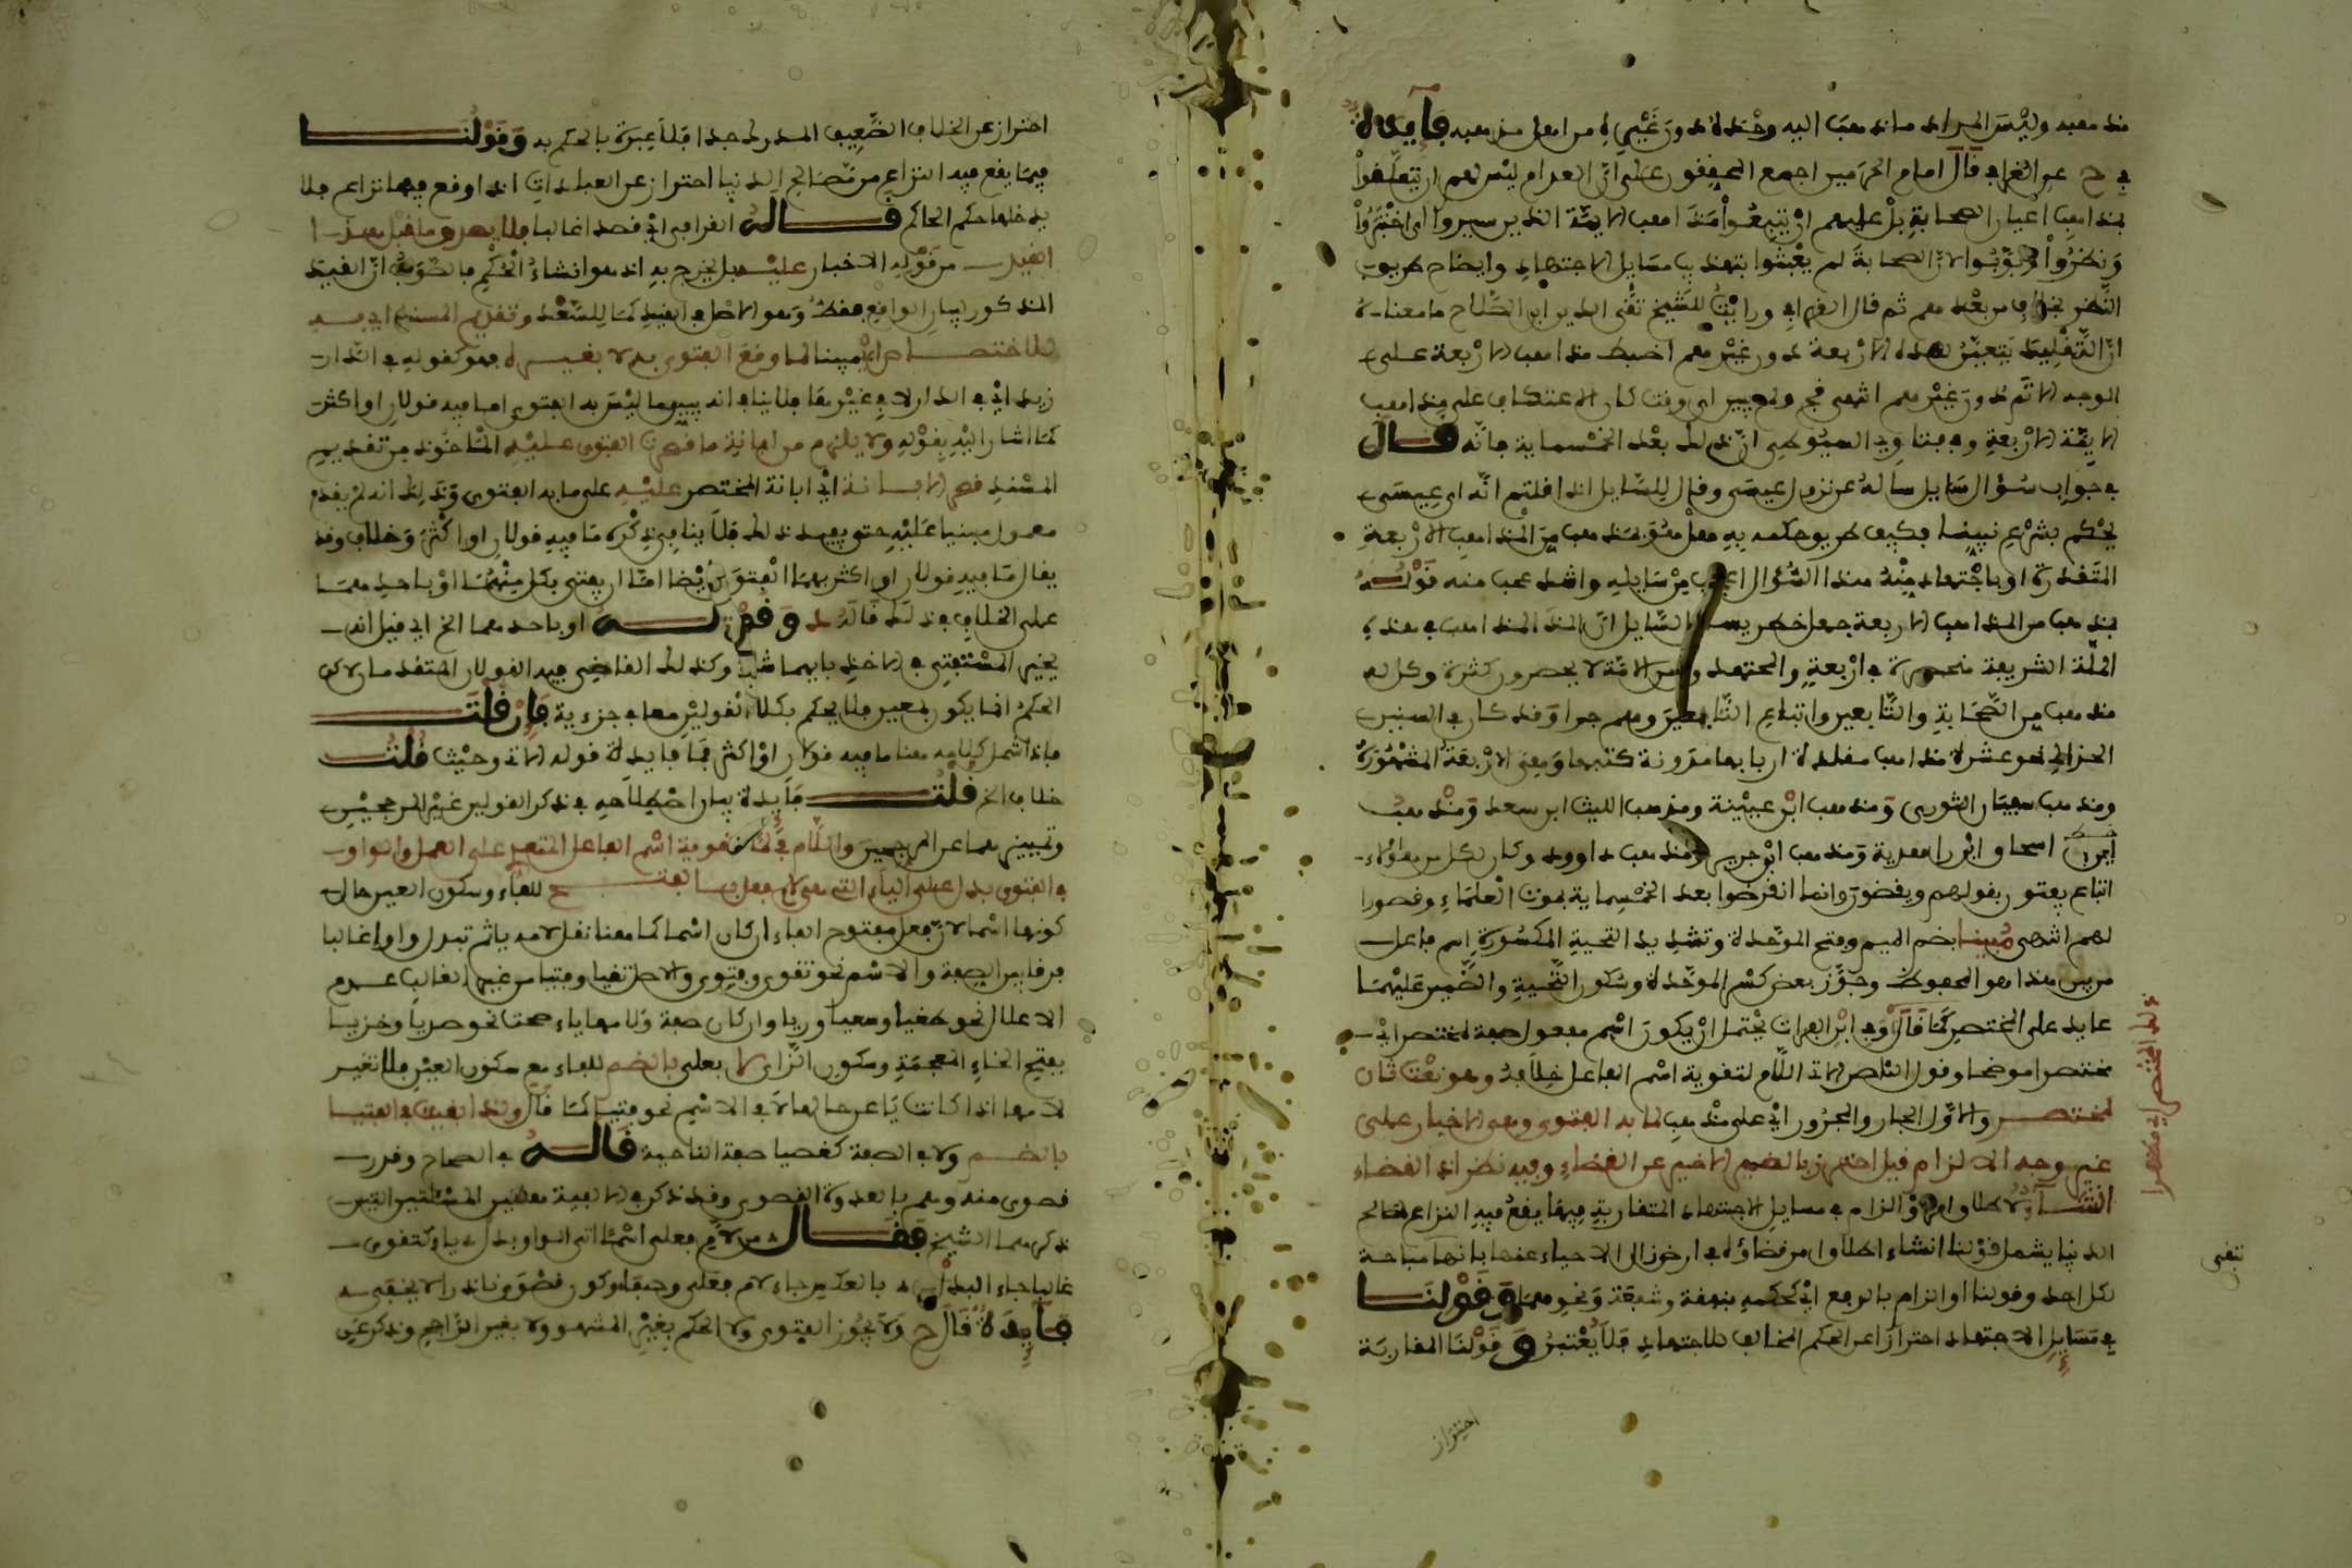 مذهبه وليس المراد ما ذهب اليه وحده دون غيره من اهل مذهبه فايدة
في ح عن القرافي قال امام الحرمين اجمع المحققون على ان العوام ليس لهم ان يتعلقوا
بمذاهب اعيان الصحابة بل عليهم ان يتبعوا مذاهب الايمة الذين سبروا اي اختبروا
ونظروا وبوبوا لان الصحابة لم يعتنوا بتهذيب مسايل الاجتهاد وايضاح طريق
النظر بخلاف من بعدهم ثم قال القرافي ورايت للشيخ تقي الدين ابن الصلاح ما معناه
ان التقليد يتعين لهذه الاربعة دون غيرهم اضبط مذاهب الاربعة على
الوجه الاتم دون غيرهم انتهى
الايمة الاربعة وفي فتاوي السيوطي ان ذلك بعد الخمسماية فانه قال
في جواب سؤال سايل ساله عن نزول عيسى وقال للسايل اذا قلتم انه اي عيسى
يحكم بشرع نبينا فكيف طريق حكمه به هل هو بمذهب من المذاهب الاربعة
المتقدرة او باجتهاد منه هذا السؤال اعجب من سايله واشد عجب منه قوله
بمذهب من المذاهب الاربعة فهل خطر ببال السايل ان المذاهب في هذه
الملة الشريفة منحصرة في اربعة والمجتهدون من الامة لا يحصرون كثرة وكل له
مذهب من الصحابة والتابعين واتباع التابعين وهلم جرا وقد كان في السنين
الخوالي نحو عشرة مذاهب مقلدة اربابها مدونة كتبها وهي الاربعة المشهورة
ومذهب سفيان الثوري ومذهب ابن عيينة ومذهب الليث ابن سعد ومذهب
اسحاق ابن راهوية ومذهب ابن جرير ومذهب داوود وكان لكل من هؤلاء
اتباع يفتون بقولهم ويقضون وانما انقرضوا بعد الخمسماية بموت العلماء وقصور
لهم انتهى مبينا بضم الميم وفتح الموحدة وتشديد التحية المكسورة اسم فاعل
من بين هذا هو المحفوظ وجوز بعض كسر الموحدة وسكون التحية والضمير عليهما
عايد على المختصر كما قال وفي ابن الفرات يحتمل ان يكون اسم مفعول صفة لمختصر اي
مختصرا موضحا وقول الناصر الاتي اللام لتقوية اسم الفاعل خلافه وهو نعت ثان
لمختصر والاول الجار والمجرور اي على مذهب لما به الفتوى وهي الاخبار على
غير وجه الالزام قيل احترز بالضمير الاخير عن القضاء وفيه نظر اذ القضاء
انشاء لاطلاق او الزام في مسايل الاجتهاد المتقاربة فيما يقع فيه النزاع لمصالح
الدنيا يشمل قولنا انشاء اطلاق من قضاؤه في ارض زال الاحياء عنها بانها مباحة
لكل احد وقولنا او الزام بالرفع اي كحكمه بنفقة وشفعة ونحوهما وقولنا
في مسايل الاجتهاد احترازا عن الحكم المخالف للاجتهاد فلا يعتبر وقولنا المتقاربة
احتراز
تقي
احتراز عن الخلاف الضعيف المدرك جدا فلا عبرة بالحكم به وقولنا
فيما يقع فيه النزاع من مصالح الدنيا احتراز عن العبادات اذا وقع فيها نزاع فلا
يدخلها حكم الحاكم قاله القرافي اي قصدا غالبا
من قوله الاخبار عليه بل يخرج به اذ هو انشاء الحكم فالصواب ان القيد
المذكور لبيان الواقع فقط وهو الاصل في القيد كما للسعد وتقديم المسند
للاختصاص اي مبينا لما وقع الفتوى به لا بغيره فهو كقوله في الدار
زيد اي في الدار لا في غيرها فلا ينافي انه يبين ما ليس به الفتوى
كما اشار اليه بقوله ولا يلزم من ابانة ما قصرت الفتوى عليه الماخوذ من تقديم
المسند قصر الابانة اي ابانة المختصر عليه على ما به الفتوى وذلك انه لم يقدم
معمول مبينا عليه حتى يفيد ذلك فلا ينافي ذكره ما فيه قولان او اكثر وخلاف وقد
يقال ما فيه قولان او اكثر بهما الفتوى ايضا اما ان يفتى بكل منهما او باحدهما
على الخلاف في ذلك قاله د وقوله او باحدهما الخ اي قيل انه
يخير المستفتي في الاخذ بايهما شاء وكذلك القاضي فيه القولان المتقدمان لاكن
الحكم انما يكون لمعين فلا يحكم بكلا القولين معا في جزءية فان قلت
فاذا شمل كلامه هنا ما فيه قولان او اكثر فما فايدة قوله الاتي وحيث قلت
خلاف الخ قلت فايدة بيان اصطلاحه في ذكر القولين غير المرجحين
وتمييزهما عن المرجحين واللام في لما لتقوية اسم الفاعل المتعدي على العمل والواو
في الفتوى بدل على الياء التي هي لام فعلى بفتح للفاء وسكون العين حال
كونها اسما لان فعلى مفتوح الفاء ان كان اسما كما هنا تقلب لامه ياء ثم تبدل واوا غالبا
فرقا بين الصفة والاسم نحو تقوى وفتوى والاصل تقيا وفتيا من غير الغالب عدم
الاعلال نحو طغيا وسعيا وريا وان كان صفة ولامها ياء صحت نحو صديا وخزيا
بفتح الخاء المعجمة وسكون الزاي لا فعلى بالضم للفاء مع سكون العين فلا تغير
لامها اذا كانت ياء عن حالها لا في الاسم نحو فتيا كما قال ولذا ابقيت في الفتيا
بالضم ولا في الصفة كقصيا صفة الناحية قاله في الصحاح وقررت
قصوى منه وهم بالعدوة القصوى وقد ذكر في الالفية هاتين المسئلتين اللتين
ذكرهما الشيخ فقال من لام فعلى اسما اتى الواو بدل ياء كتقوى
غالبا جاء البدل بالعكس جاء لام فعلى وصفا وكون قصوى نادرا لا يخفى
فايدة قال ح ولا يجوز الفتوى ولا الحكم بغير المشهور ولا بغير الراجح وذكر عن